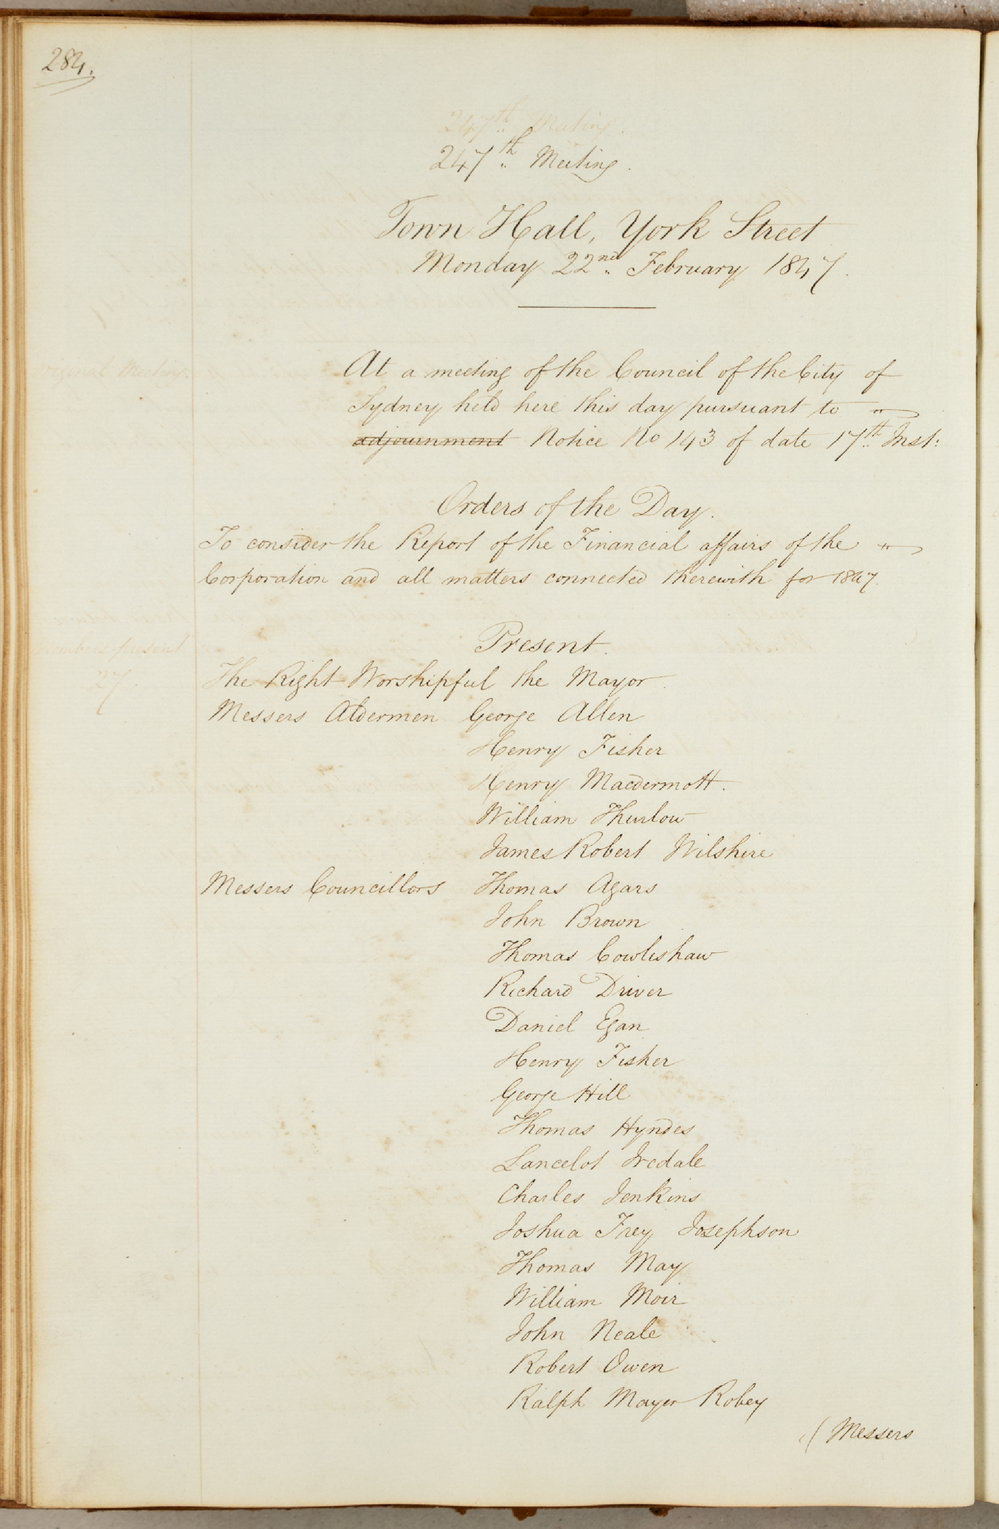 284.
247th Meeting.
247th Meeting.
Town Hall, York Street
Monday 22nd. February 1847.
Special Meeting
At a meeting of the Council of the City of
Sydney held here this day pursuant to
adjournment Notice No 143 of date 17th Inst:
Orders of the Day.
To consider the Report of the Financial affairs of the
Corporation and all matters connected therewith for 1847.
Present.
Members present
27.
The Right Worshipful the Mayor.
Messers Aldermen George Allen
Henry Fisher
Henry Macdermott.
William Thurlow
James Robert Wilshire
Messers Councillors Thomas Agars
John Brown
Thomas Cowlishaw
Richard Driver
Daniel Egan
Henry Fisher
George Hill
Thomas Hyndes
Lancelot Iredale
Charles Jenkins
Joshua Frey Josephson
Thomas May
William Moir
John Neale
Robert Owen
Ralph Mayer Robey
/(Messers